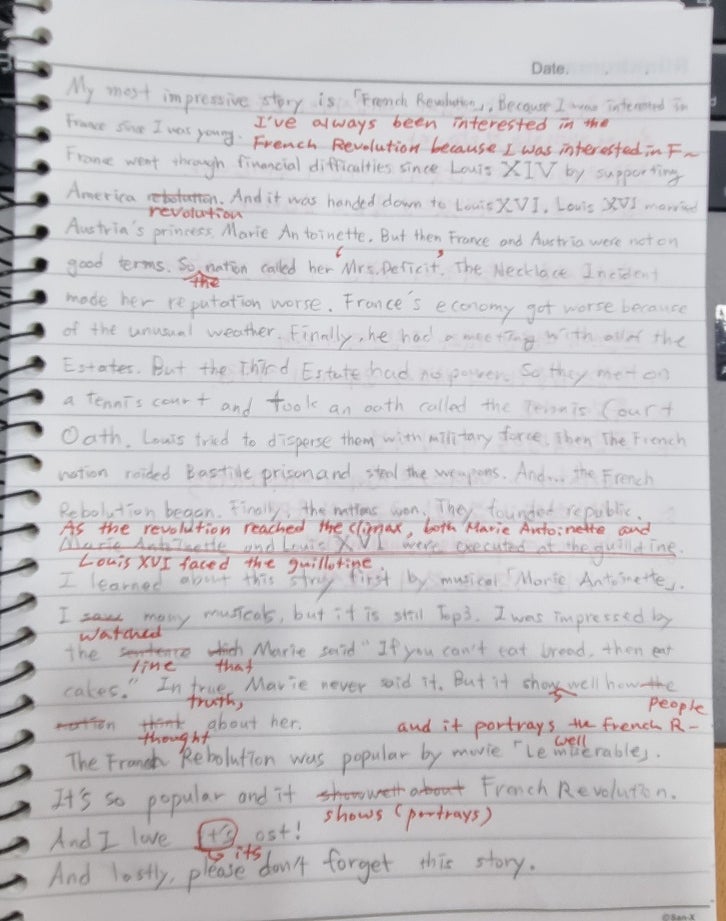 Date.
My most impressive story is 「French Revolution」. Because I was interested in
France since I was young. I've always been interested in the
French Revolution because I was interested in F~
France went through financial difficulties since Louis XIV by supporting
America rebolution. And it was handed down to Louis XVI. Louis XVI married
revolution
Austria's princess, Marie Antoinette. But then France and Austria were not on
good terms. So nation called her 'Mrs. Deficit'. The Necklace Incident
the
made her reputation worse. France's economy got worse because
of the unusual weather. Finally, he had a meeting with all of the
Estates. But the Third Estate had no power. So they met on
a Tennis court and took an oath called the Tennis Court
Oath. Louis tried to disperse them with military force. Then The French
nation raided Bastille prison and steal the weapons. And... the French
Rebolution began. Finally, the nations won. They founded republic.
As the revolution reached the climax, both Marie Antoinette and
Marie Antoinette and Louis XVI were executed at the guillotine.
Louis XVI faced the guillotine.
I learned about this stroy first by musical 「Marie Antoinette」.
I saw many musicals, but it is still Top3. I was impressed by
watched
the sentence which Marie said "If you can't eat bread, then eat
line that
cakes." In true, Marie never said it. But it show well how the
truth, s people
nation think about her. and it portrays the French R-
thought well
The French Rebolution was popular by movie 「Le miserable」.
It's so popular and it show well about French Revolution.
shows (portrays)
And I love it's ost!
its
And lastly, please don't forget this story.
©San-X